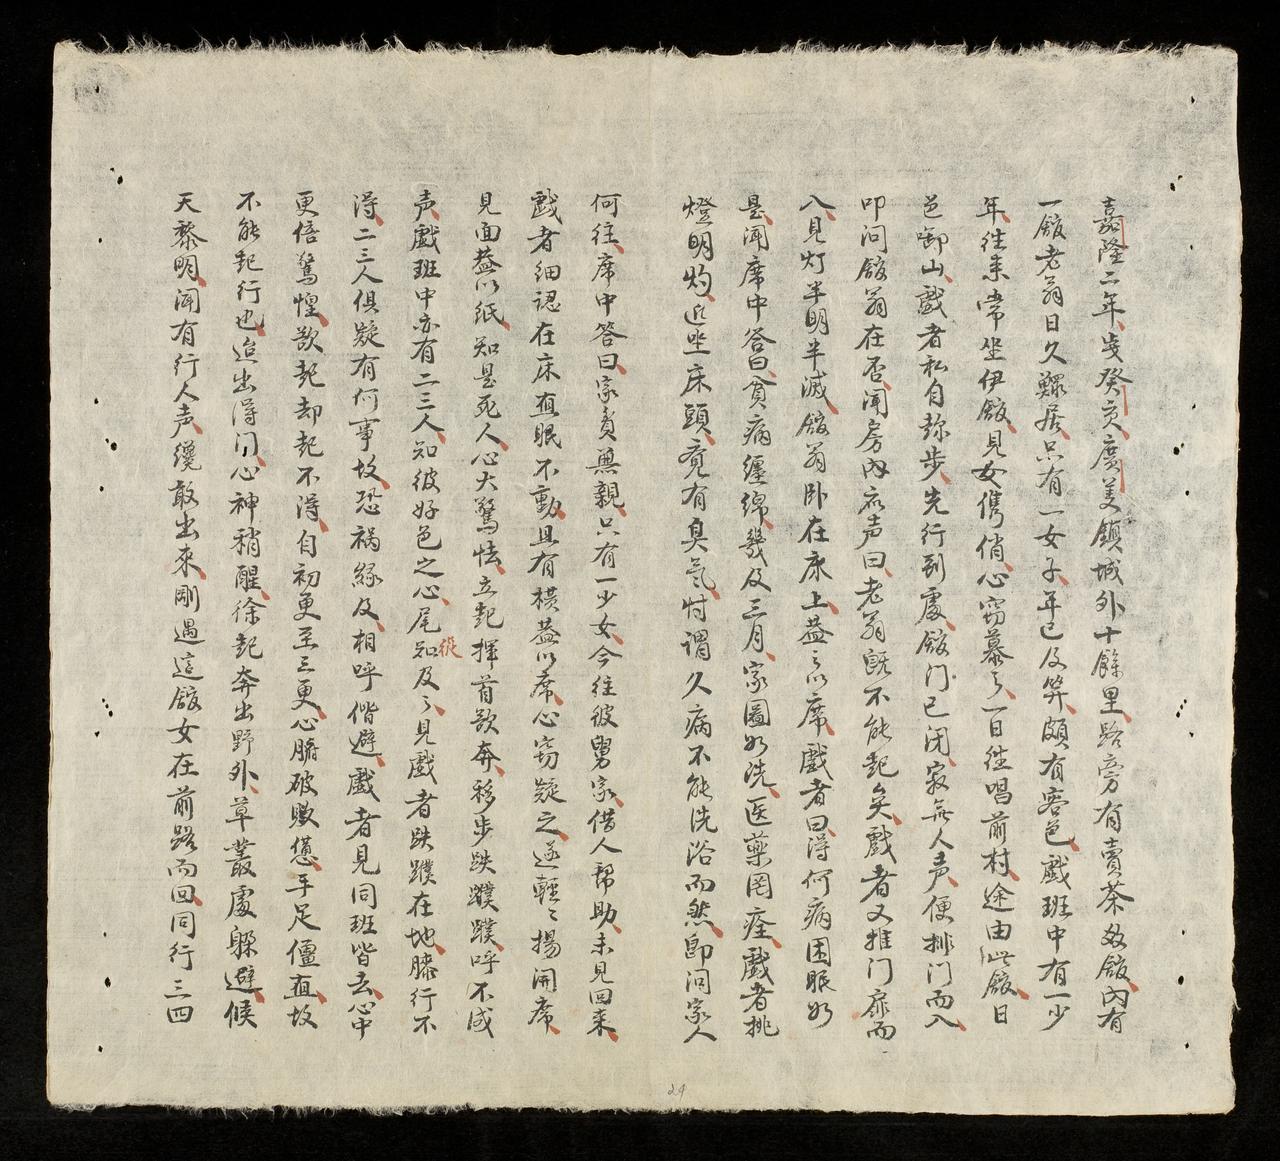 嘉隆二年歲癸亥廣美鎮城外十餘里路旁有賣茶数舘內有
一舘老翁日久鰥居只有一女子年已及笄頗有容色戲班中有一少
年往来常坐伊舘見女雋俏心窃慕之一日往唱前村途由此舘日
邑啣山戲者私自称步先行到處舘门已闭寂無人声便排门而入
叩问舘翁在否闻房內应声曰老翁既不能起矣戲者又推门扉而
入見灯半明半滅舘翁卧在床上盖之以席戲者曰得何病困眠如
是闻席中答曰貧病纏綿幾及三月家圖如洗医藥罔痊戲者挑
燈明灼近坐床頭竟有臭氣忖謂久病不能洗浴而然即问家人
何往席中答曰家貧無親只有一少女今往彼舅家借人帮助未見回来
戲者細認在床直眠不動且有横盖以席心窃疑之遂輕々揚開席
見面盖以紙知是死人心大驚怯立起揮首欲奔移步跌蹼蹼呼不成
声戲班中亦有二三人知彼好色之心尾知及之見戲者跌蹼在地膝行不
從
得二三人俱疑有何事故恐禍緣及相呼偕避戲者見同班皆去心中
更倍驚惶欲起却起不得自初更至三更心膽破敗憊手足僵直故
不能起行也迨出得门心神稍醒徐起奔出野外草叢處躲避候
天黎明闻有行人声纔敢出來剛遇這舘女在前路而回同行三四
24